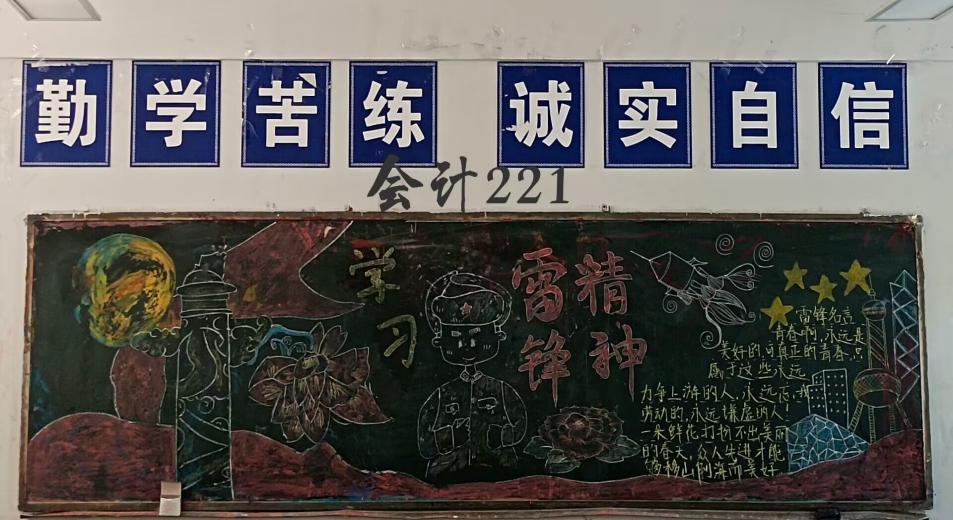 勤学苦练 诚实自信
会计221
学习
雷锋
精神
雷锋名言
青春啊,永远是
美好的,可真正的青春,只
属于这些永远
力争上游的人,永远忘我
劳动的,永远谦虚的人!
一朵鲜花打扮不出美丽
的春天,众人先进才能
山倒海而美好